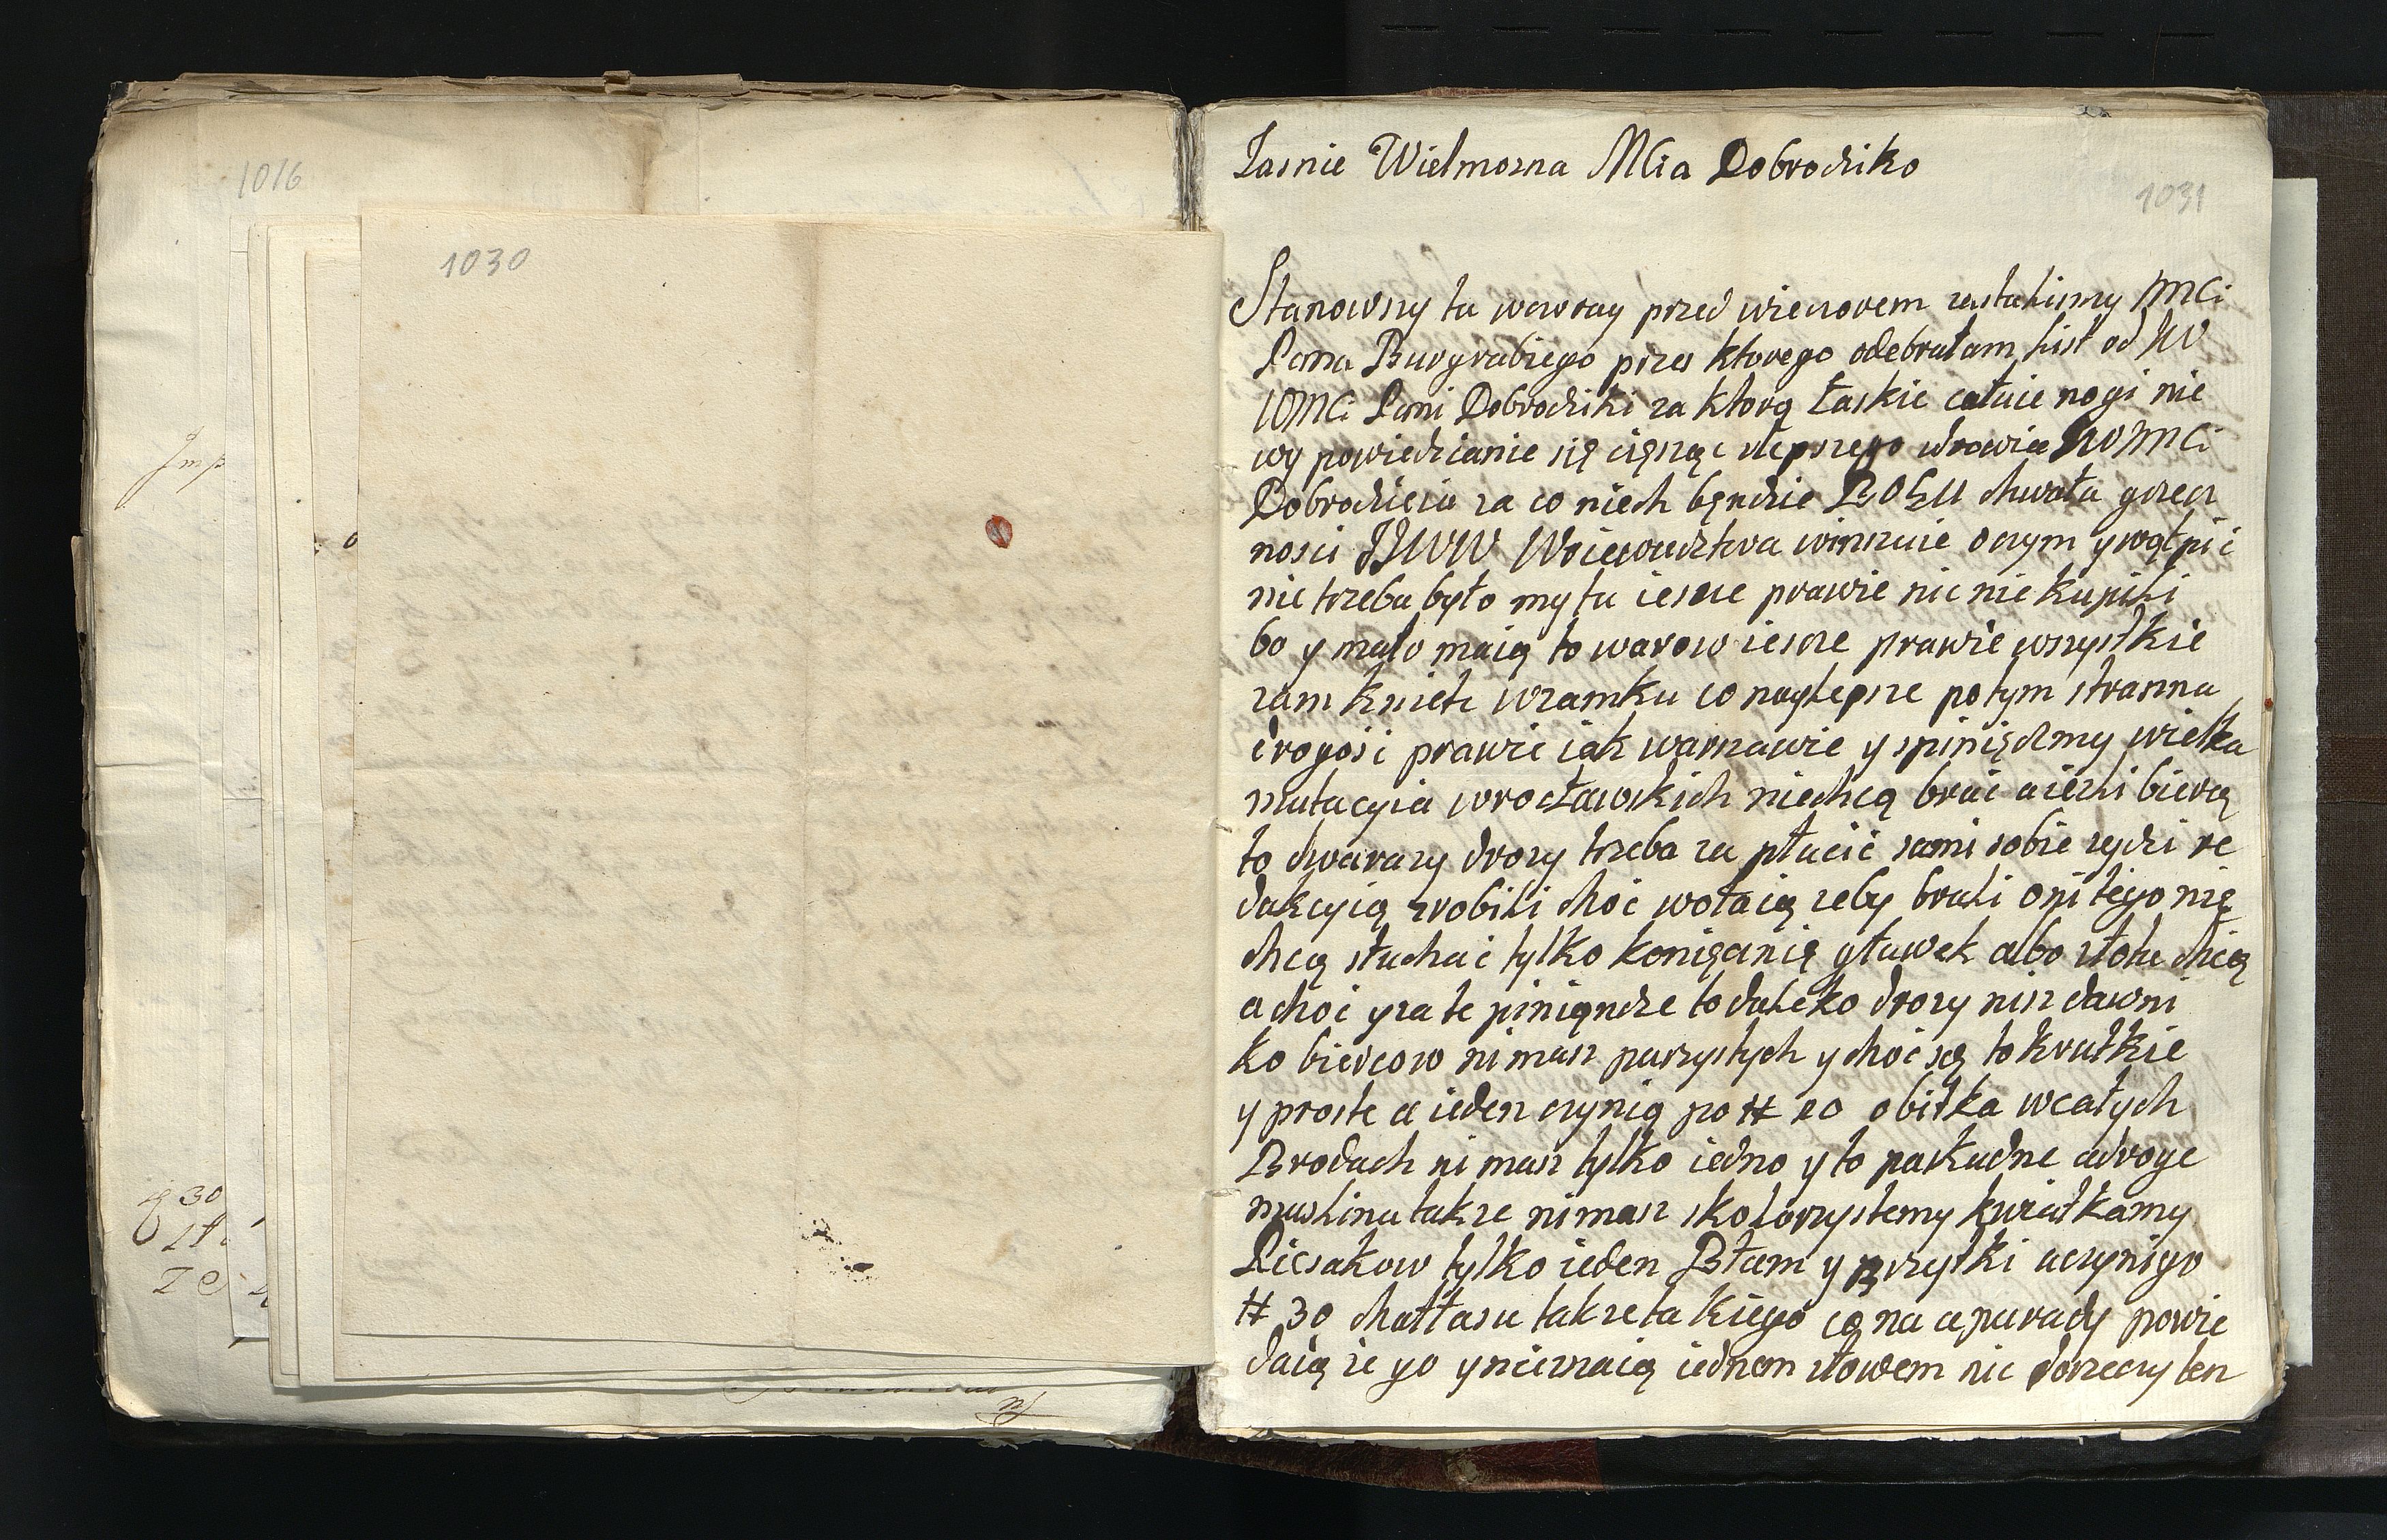 1016
1030
Jmp
30
Jasnie Wielmozna MCia Dobrodziko
1031
Stanowszy tu wewray przed wieczorem zastalismy JMCi
Pana Burgrabiego przez ktorego odebrałam list od JW
JOMCi Pani Dobrodziki za ktorą łaskie całuie nogi nie
wy powiedzianie się cięsząc zlepszego zdrowia JWJMCi
Dobrodzieia za co niech będzie BOGU chwała grzecz
nosci JJWW Woiewodztwa winszuie oczym y wątpic
nie trzeba było my tu iescze prawie nic nie kupili
bo y mało maią to warow iescze prawie wszystkie
zam kniete wzamku co naylepsze potym straszna
drogosc prawie iak warszawie y spiniędzmy wielka
mutacyia wrocławskich niechcą brac aiezli bierą
to dwarazy drozy trzeba za płacic sami sobie zydzi re
dukcyią zrobili choc wołaią zeby brali oni tego nie
chcą słuchac tylko koniecznię gławek albo złota chcą
a choc y za te piniądze to daleko drozy nisz dawni
ko biercow ni masz parzystych y choc są to krutkie
y proste a ieden czynią po # 20 obitka wcałych
Brodach ni masz tylko iedno y to paskudne adroge
muslinu takze nimasz skolorzystemy kwiatkamy
Piesakow tylko ieden Błam y Brzytki aczynigo
# 30 chałtasu takze ta kiego co na aparady powie
daią ze go y nieznaią iednem słowem nic dorzeczy ten